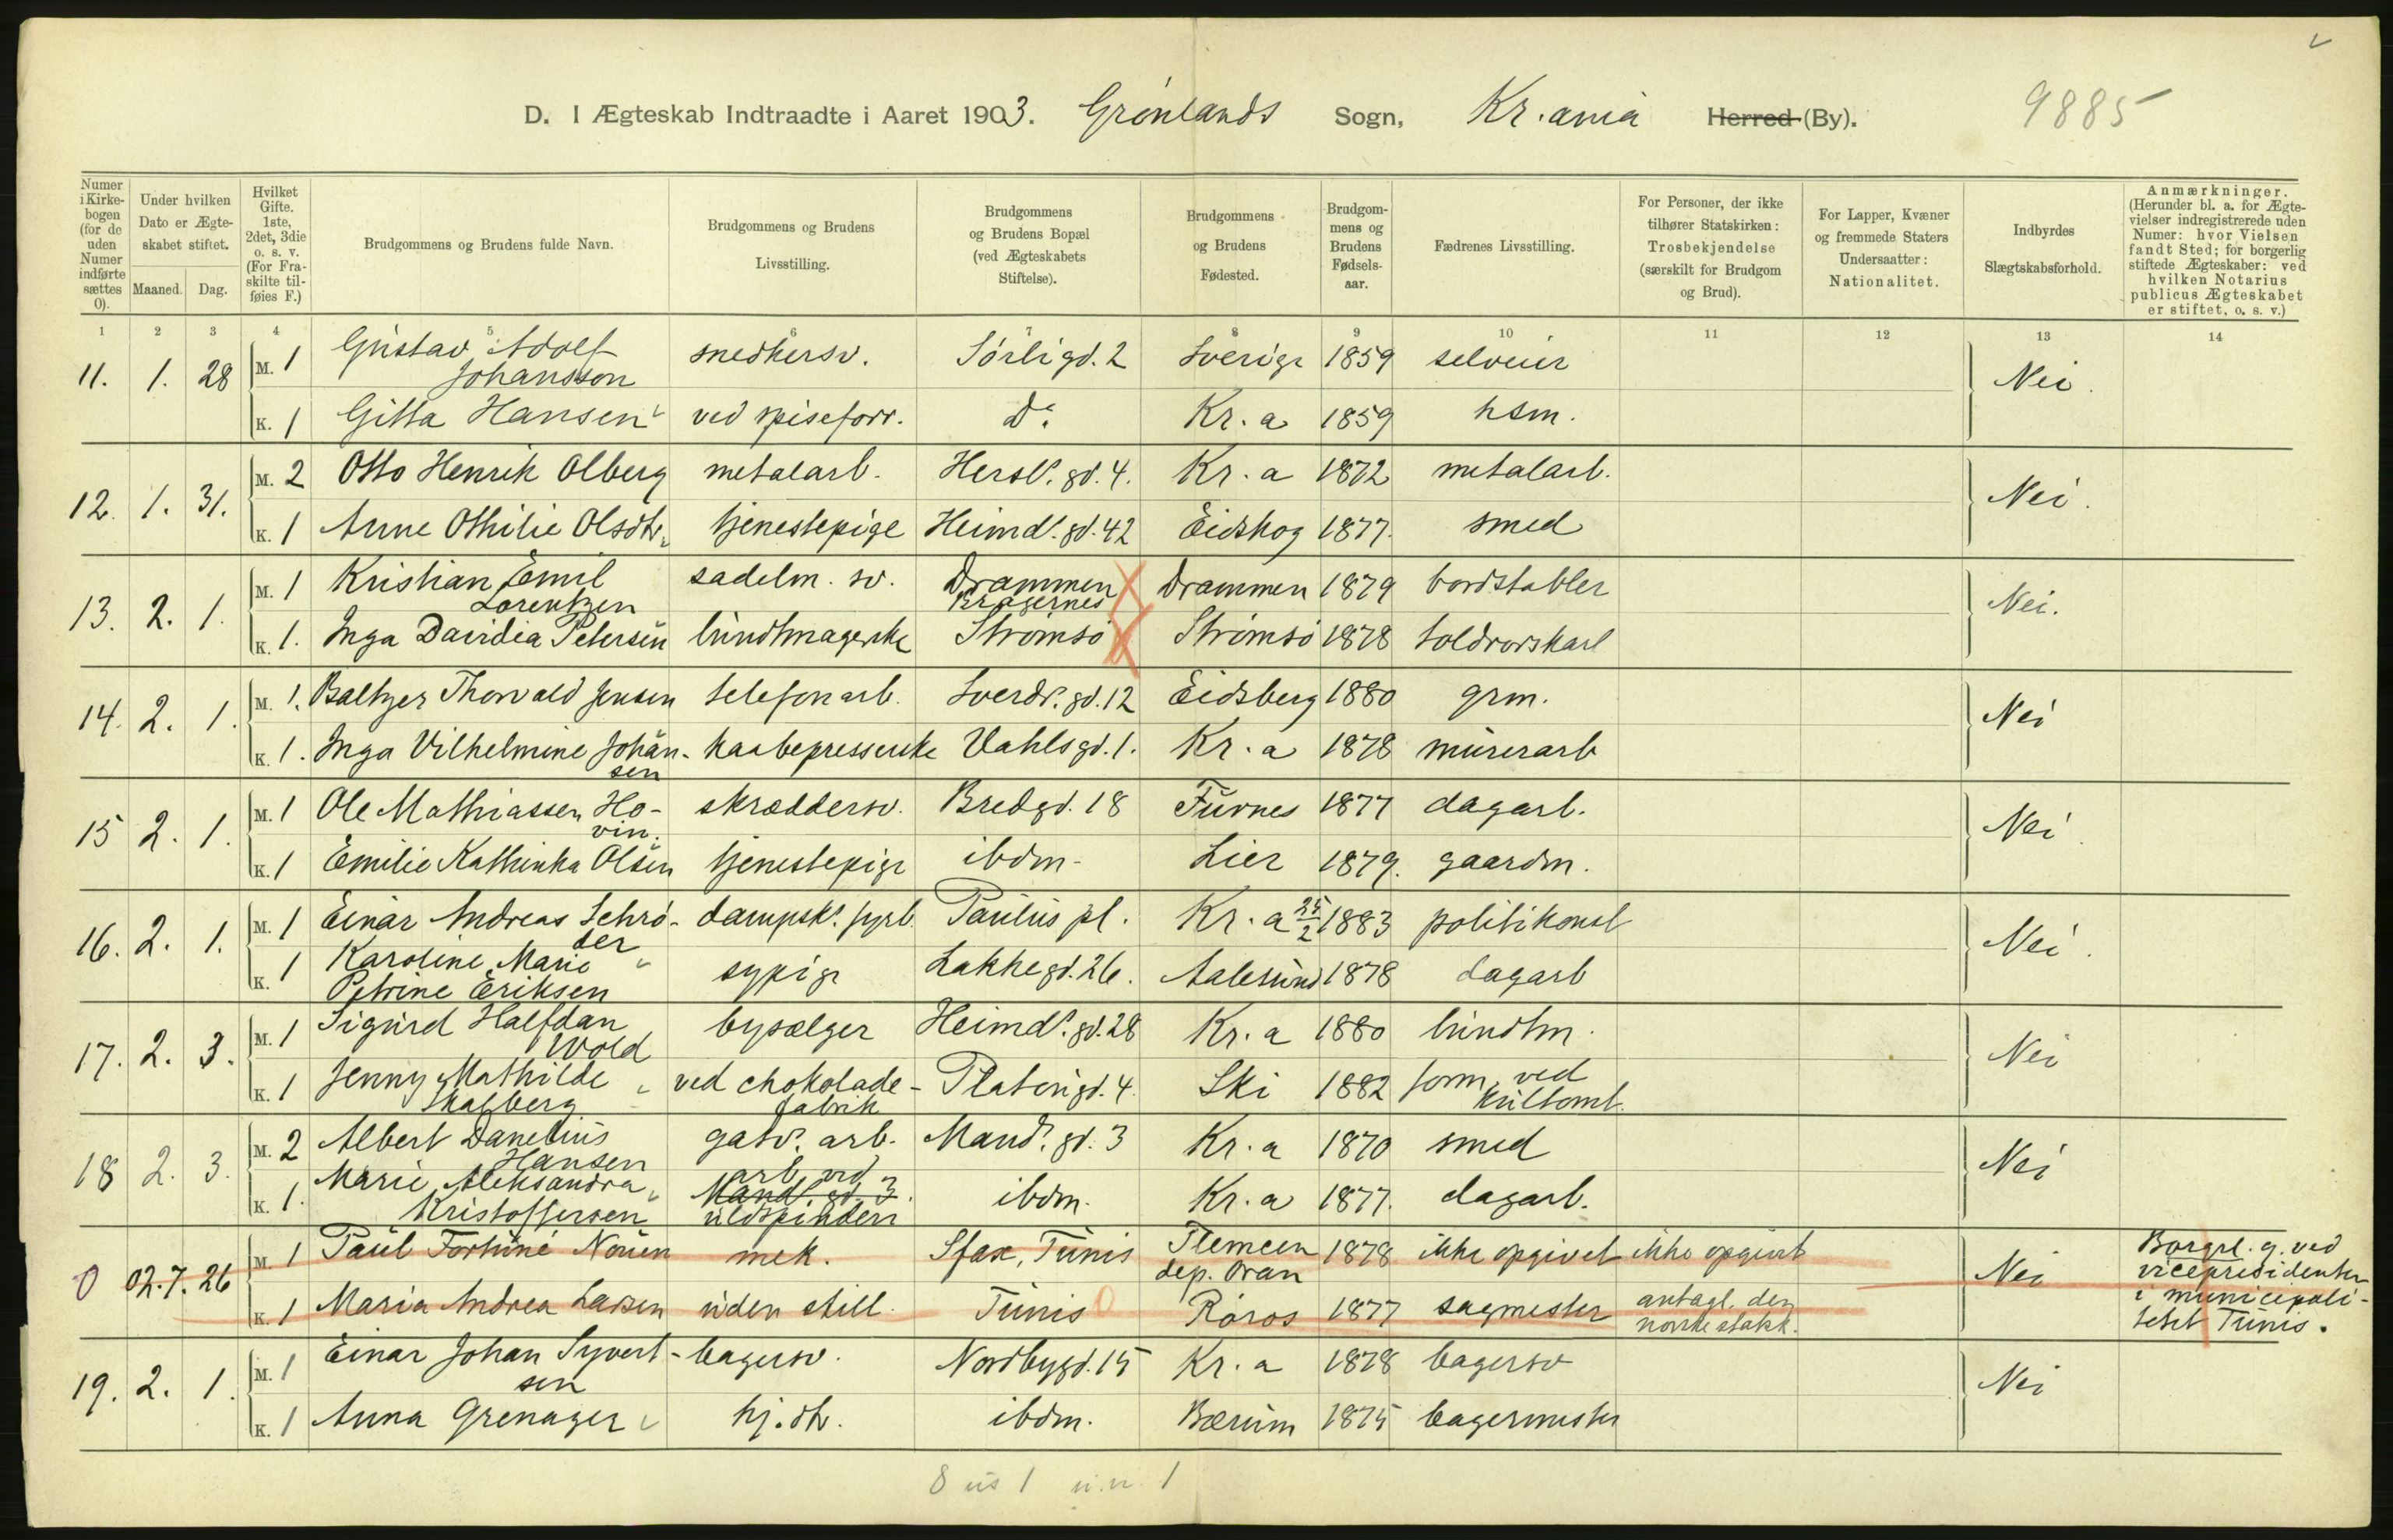 D. I Ægteskab Indtraadte i Aaret 1903. Grönlands Sogn, Kr.ania Herred (By). 9885
Numer i Kirkebogen (for de uden Numer indførte sættes 0).
Under hvilken Dato er Ægteskabet stiftet.
Maaned. Dag.
Hvilket Gifte. 1ste, 2det, 3die o. s. v. (For Fraskilte tilføies F.)
Brudgommens og Brudens fulde Navn.
Brudgommens og Brudens Livsstilling.
Brudgommens og Brudens Bopæl (ved Ægteskabets Stiftelse).
Brudgommens og Brudens Fødested.
Brudgommens og Brudens Fødselsaar.
Fædrenes Livsstilling.
For Personer, der ikke tilhører Statskirken: Trosbekjendelse (særskilt for Brudgom og Brud).
For Lapper, Kvæner og fremmede Staters Undersaatter: Nationalitet.
Indbyrdes Slægtskabsforhold.
Anmærkninger. (Herunder bl. a. for Ægtevielser indregistrerede uden Numer: hvor Vielsen fandt Sted; for borgerlig stiftede Ægteskaber: ved hvilken Notarius publicus Ægteskabet er stiftet, o. s. v.)
1 2 3 4 5 6 7 8 9 10 11 12 13 14
11. 1. 28 M. 1 Gustav Adolf Johansson snedkersv. Sörligd. 2 Sverige 1859 selveier Nei.
K. 1 Gitta Hansen ved spiseforr. Do. Kr.a 1859 hsm.
12. 1. 31. M. 2 Otto Henrik Olberg metalarb. Hersl. gd. 4. Kr.a 1872 metalarb. Nei.
K. 1 Anne Othilie Olsdtr. tjenestepige Heimd. gd. 42 Eidskog 1877. smed
13. 2. 1. M. 1 Kristian Emil Lorentzen sadelm. sv. Drammen Bragernes Drammen 1879 bordstabler Nei.
K. 1. Inga Davidia Petersen bundtmagerske Strömsö Strömsö 1878 toldrorskarl
14. 2. 1. M. 1. Baltzer Thorvald Jensen telefonarb. Sverdr. gd. 12 Eidsberg 1880 grm. Nei
K. 1. Inga Vilhelmine Johansen kaabepresserske Vahlsgd. 1. Kr.a 1878 murerarb
15 2. 1. M. 1 Ole Mathiassen Hovin. skræddersv. Bredgd. 18 Furnes 1877 dagarb. Nei
K. 1 Emilie Kathinka Olsen tjenestepige ibdm. Lier 1879. gaardm.
16. 2. 1. M. 1 Einar Andreas Schröder dampsk. fyrb. Paulus pl. Kr.a 25/2 1883 politikonst Nei.
K. 1 Karoline Marie Petrine Eriksen sypige Lakkegd. 26. Aalesund 1878 dagarb
17. 2. 3. M. 1 Sigurd Halfdan Wold bysælger Heimd. gd. 28 Kr.a 1880 bundtm. Nei
K. 1 Jenny Mathilde Skalberg ved chokoladefabrik Platougd. 4. Ski 1882 form. ved kultomt.
18 2. 3. M. 2 Albert Danelius Hansen gasv. arb. Mand. gd. 3 Kr.a 1870 smed Nei
K. 1. Marie Aleksandra Kristoffersen arb. ved Mand. gd. 3. uldspinderi ibdm. Kr.a 1877. dagarb.
0 02.7.26 M. 1 Paul Fortuné Nouen mek. Sfax, Tunis Tlemcen dep. Oran 1878 ikke opgivet ikke opgivet Nei Borgrl. g. ved vicepresidenten i municipalitetet Tunis.
K. 1 Maria Andrea Larsen uden still. Tunis 0 Röros 1877 sagmester antagl. den norske statsk.
19. 2. 1. M. 1 Einar Johan Syvertsen bagersv. Nordbygd. 15 Kr.a 1878 bagersv Nei
K. 1 Anna Grenager hj. dtr. ibdm. Bærum 1875 bagermester
8 us 1 u.n. 1